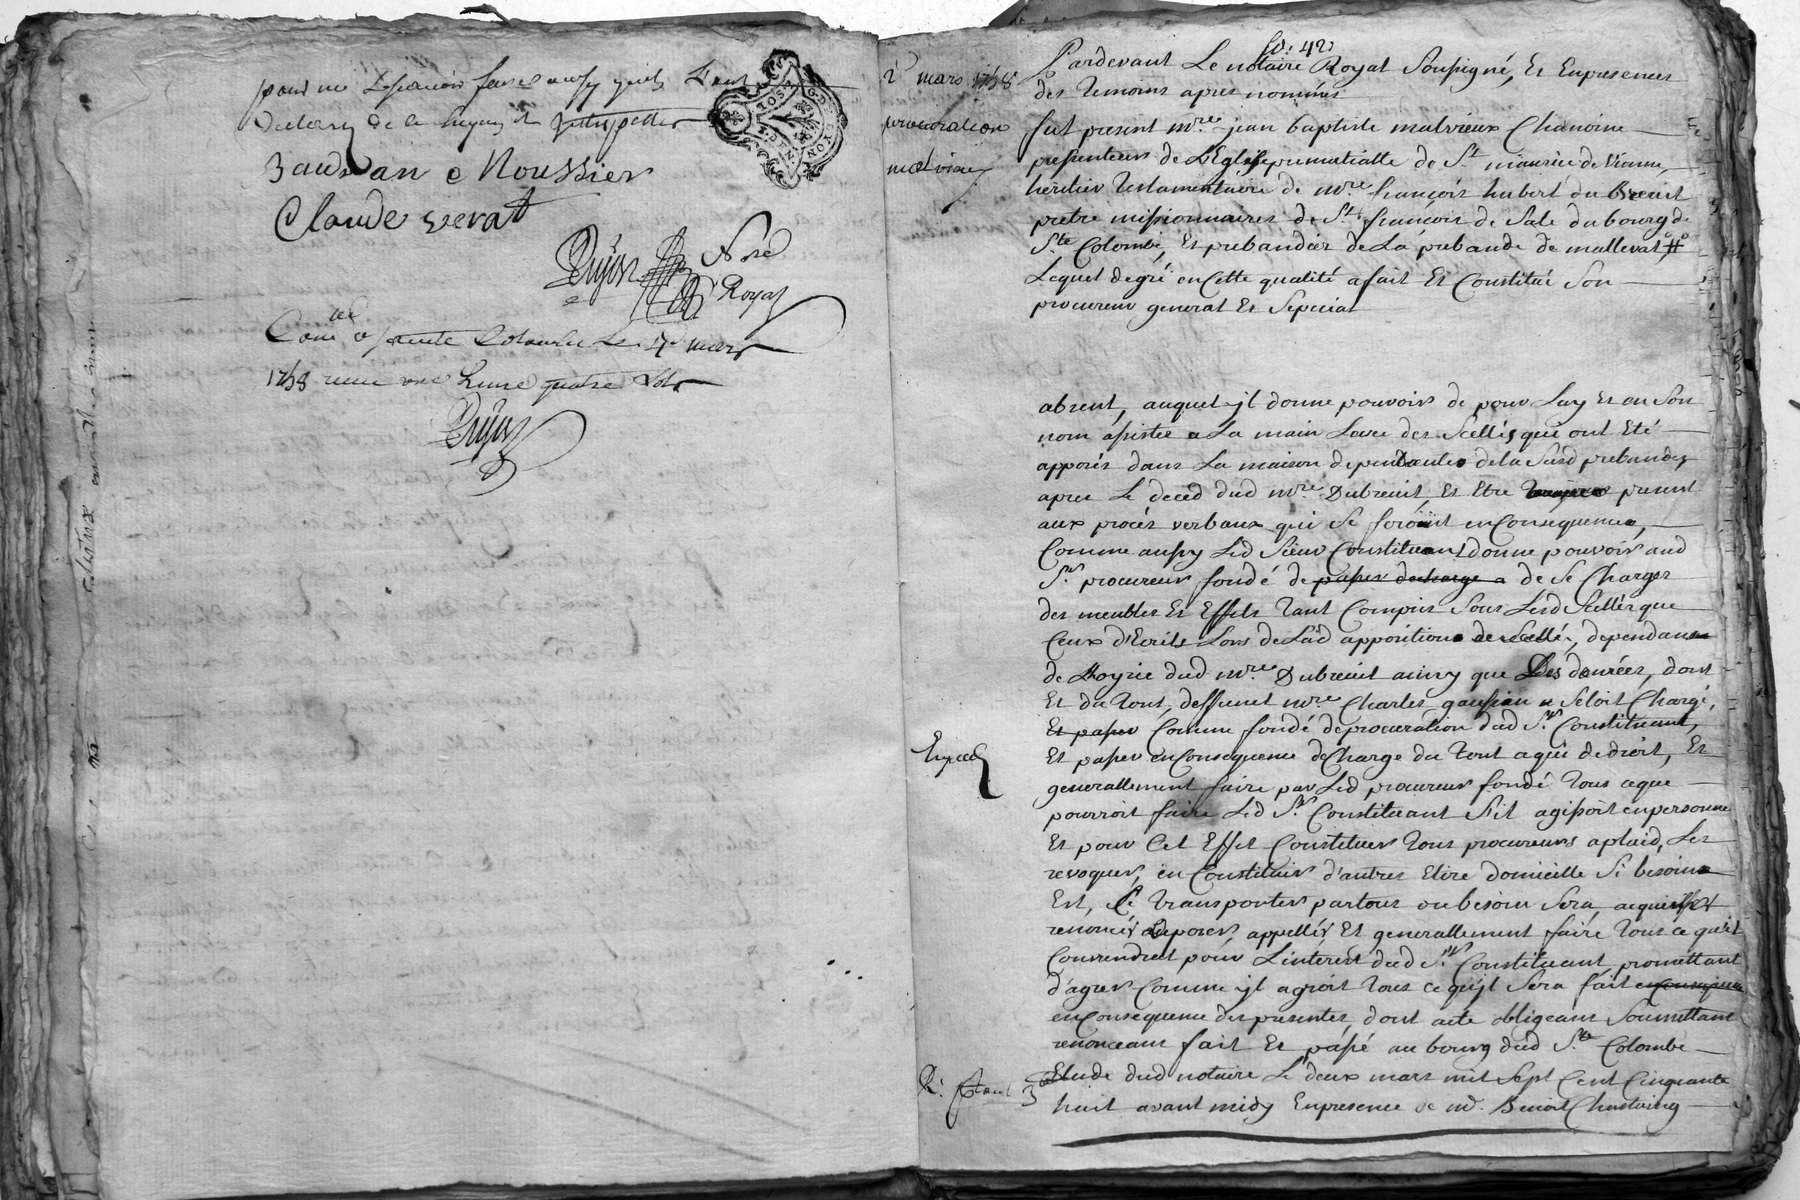 pour ne
de ce Enquis et
Baudran C Roussier
Claude Verat
Noré
Royal
Conté a sainte Colombe Le 4e mars
1758 quatre sols
fo: 42
2 mars 1758
procuration
malvieux
Pardevant Le notaire Royal Soussigné, Et Enpresences
des temoins apres nommés
fut present mre. jean baptiste malvieux Chanoine
de L'Eglise primatialle de St maurice de Vienne,
heritier Testamentaire de mre françois hubert du Breuit
pretre missionnaires de St françois de Sale du bourg de
Ste Colombe, Et prebandier de La prebande de mallevat #
Lequel degré en Cette qualité a fait Et Constitué Son
procureur general Et Special
absent, auquel jl donne pouvoir de pour Luy Et en Son
nom assister a La main Levée des Scellés qui ont Eté
apposés dans La maison dependante de la Susd prebande,
apres Le deced dud mre Dubreuit, Et Etre present
aux procés verbaux qui Se feroint en Consequence,
Comme aussy Led Sieur Constituant donne pouvoir aud
Sr. procureur fondé de passer decharge a de Se Charger
des meubles Et Effets Tant Compris Sous Lesd Scellés que
Ceux d'Ecrits Lors de Lad apposition de Scellé, dependans
de Lhoyrie dud mre Dubreuit ainsy que Des denrées, dont
Et du Tout, deffunct mre Charles Seloit Chargé,
Et passer Comme fondé de procuration dud Sr. Constituant,
Expedé
Et passer en Consequence deCharge du Tout a qui de droit, Et
generallement faire par Led procureur fondé Tous ce que
pourroit faire Led Sr. Constituant S'il agissoit en personne
Et pour Cet Effet Constituer Tous procureurs a plaid, Les
revoquer, en Constituer d'autres Elire domicille Si besoin
Est, Se Transporter partout ou besoin Sera, acquiesser
renoncer Deposer, appeller Et generallement faire Tous ce qu'il
Conviendrat pour L'intérest dud Sr. Constituant, promettant
d'agréer Comme jl agréoit Tous ce qu'jl Sera fait
en Consequence des presentes, dont acte obligeant Soumettant
renonceant fait Et passé au bourg dud Ste Colombe
Etude dud notaire Le deux mars mil Sept Cent Cinquante
huit avant midy En presence de mr. Benoit Chastaing